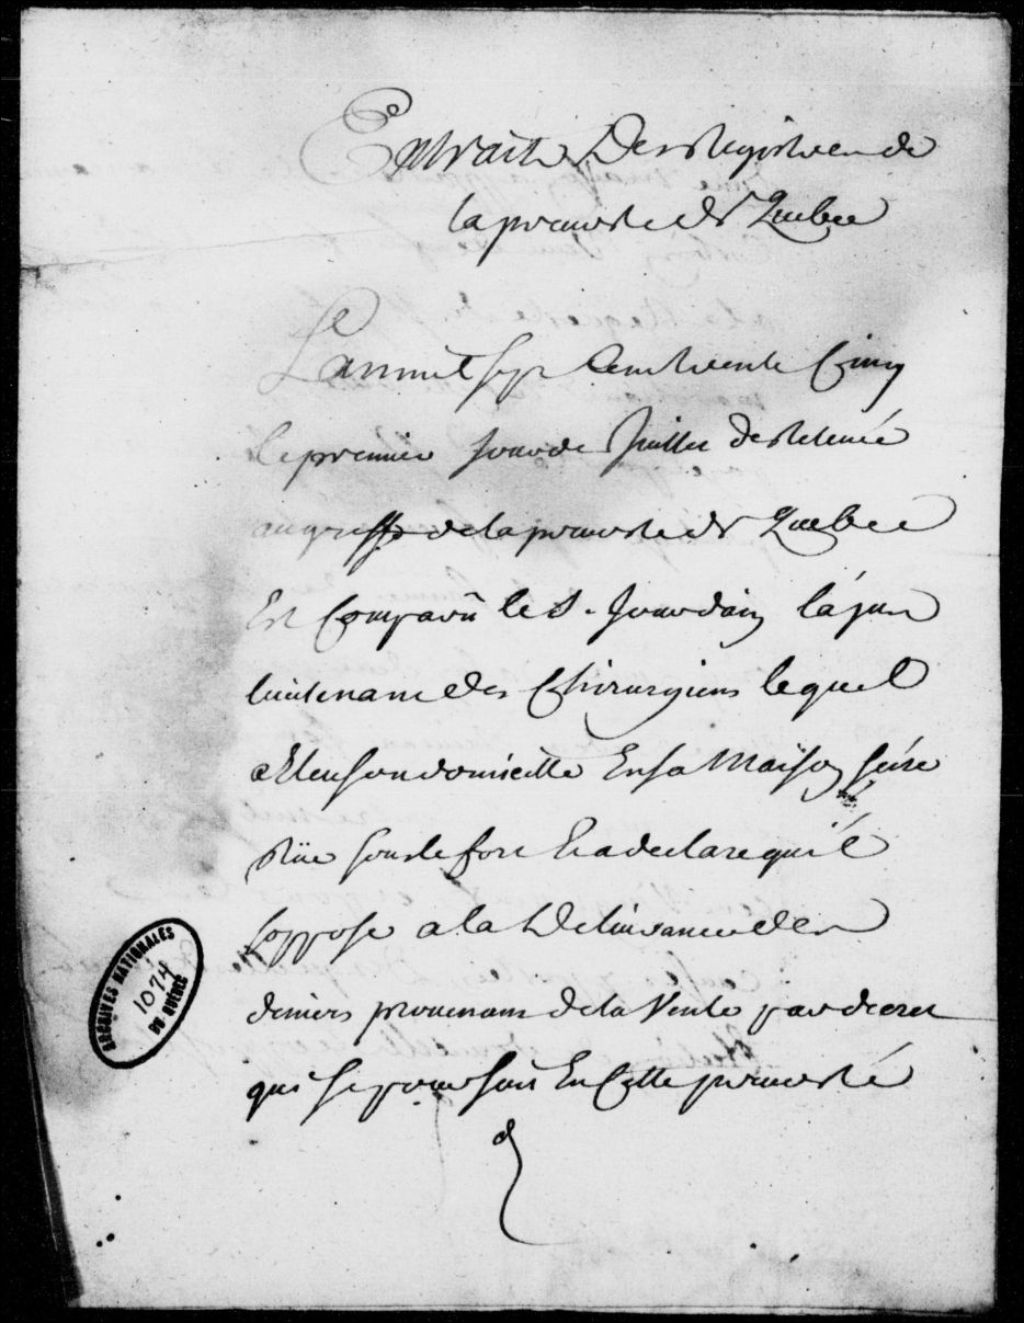 Extrait Des Registres de
la prevosté de Quebec
Lan mil sept Cent trente Cinq
le premier jour de Juillet de relevée
au greffe de la prevosté de Quebec
Est Comparu le S. Jourdain lajus
lieutenant des Chirurgiens lequel
a Eleu son domicille En sa Maison size
Rüe sous le fort Et a declaré quil
soppose a la Delivrance des
deniers provenans de la Vente par decret
qui se poursuit En Cette prevosté
ARCHIVES NATIONALES
1074
DU QUÉBEC